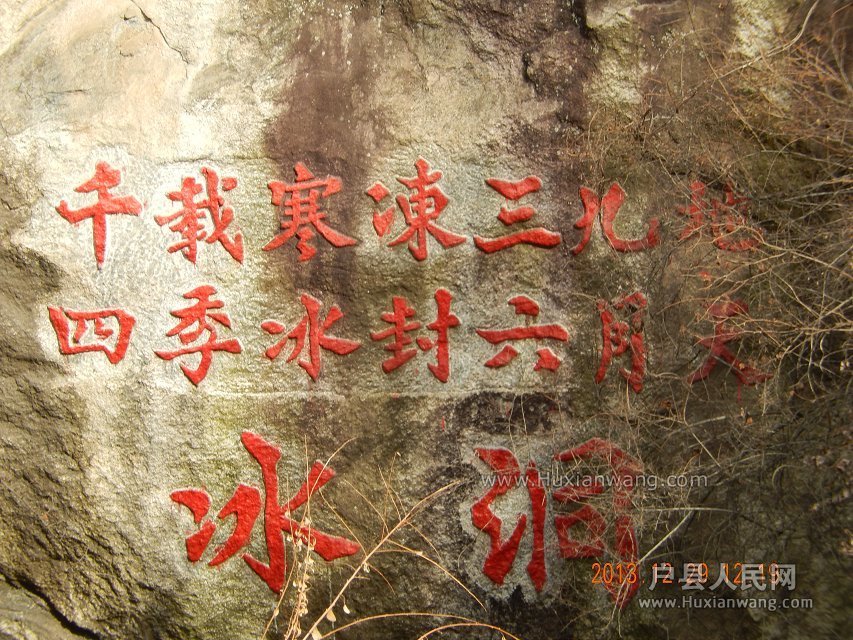 千载寒凍三九地
四季冰封六月天
冰洞
www.Huxianwang.com
2013 12 29 12:19
户县人民网
www.Huxianwang.com